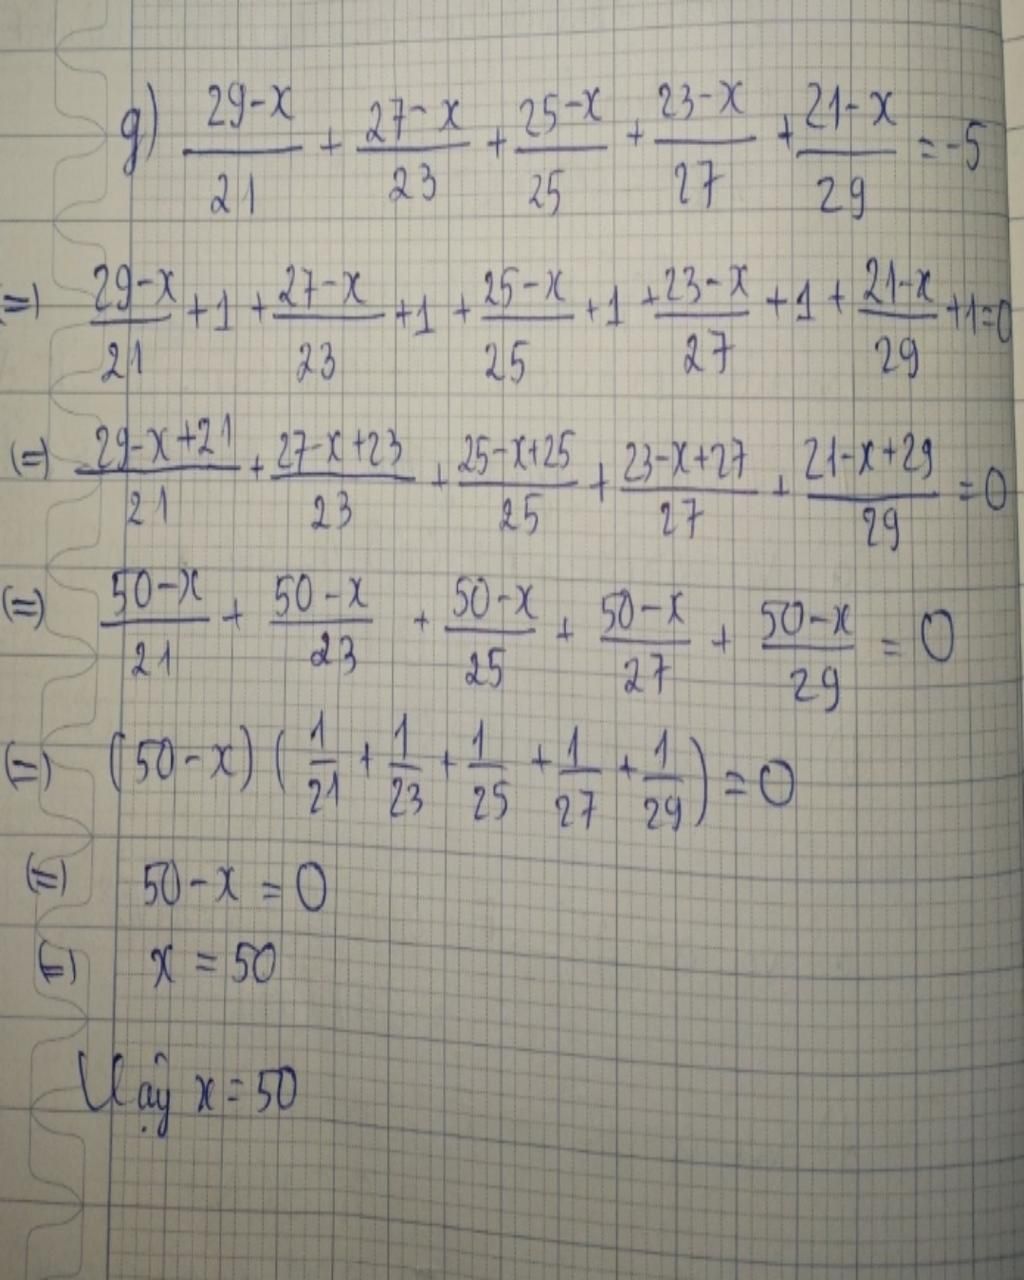 g) (29-x)/21 + (27-x)/23 + (25-x)/25 + (23-x)/27 + (21-x)/29 = -5
(=) (29-x)/21 + 1 + (27-x)/23 + 1 + (25-x)/25 + 1 + (23-x)/27 + 1 + (21-x)/29 + 1 = 0
(=) (29-x+21)/21 + (27-x+23)/23 + (25-x+25)/25 + (23-x+27)/27 + (21-x+29)/29 = 0
(=) (50-x)/21 + (50-x)/23 + (50-x)/25 + (50-x)/27 + (50-x)/29 = 0
(=) (50-x)(1/21 + 1/23 + 1/25 + 1/27 + 1/29) = 0
(=) 50-x = 0
(=) x = 50
Vậy x = 50